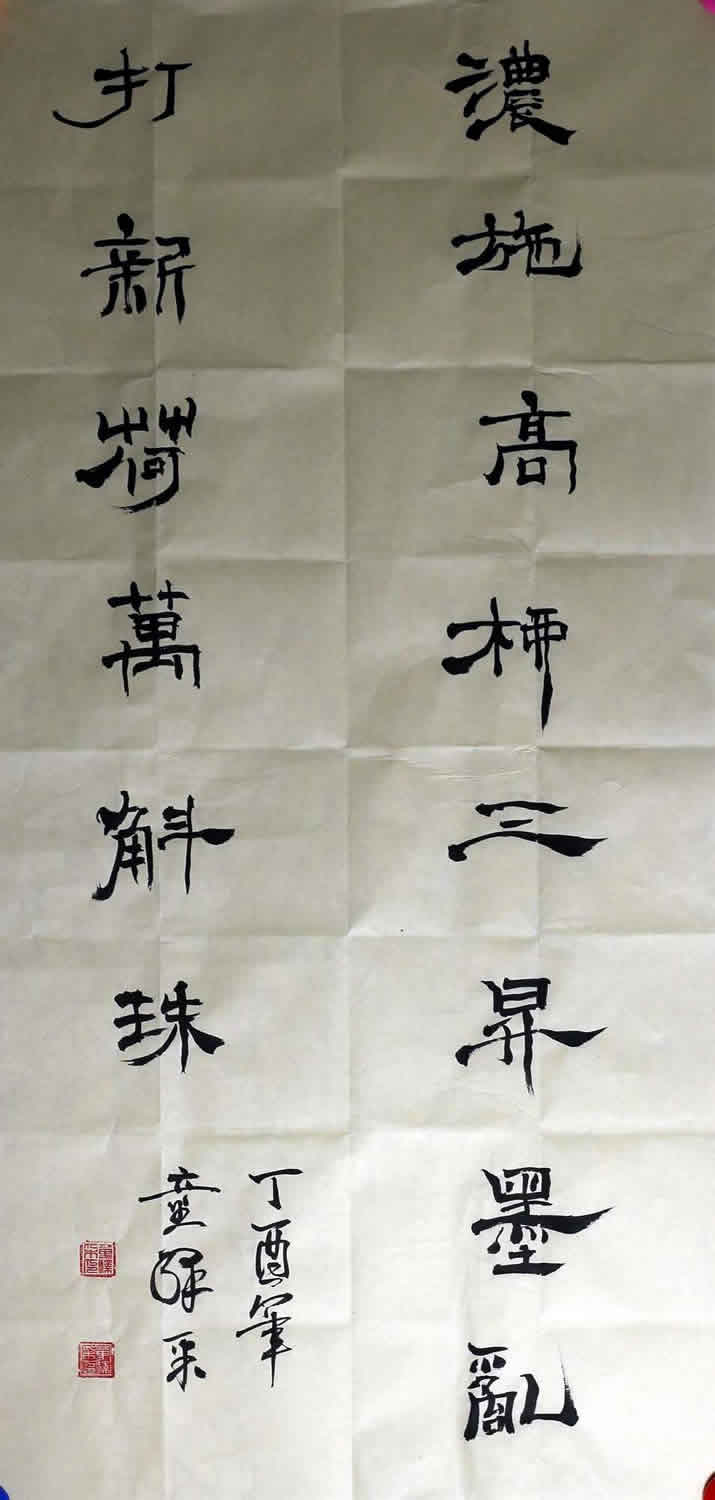 濃施高柳三昇墨亂
打新荷萬斛珠
丁酉年
童